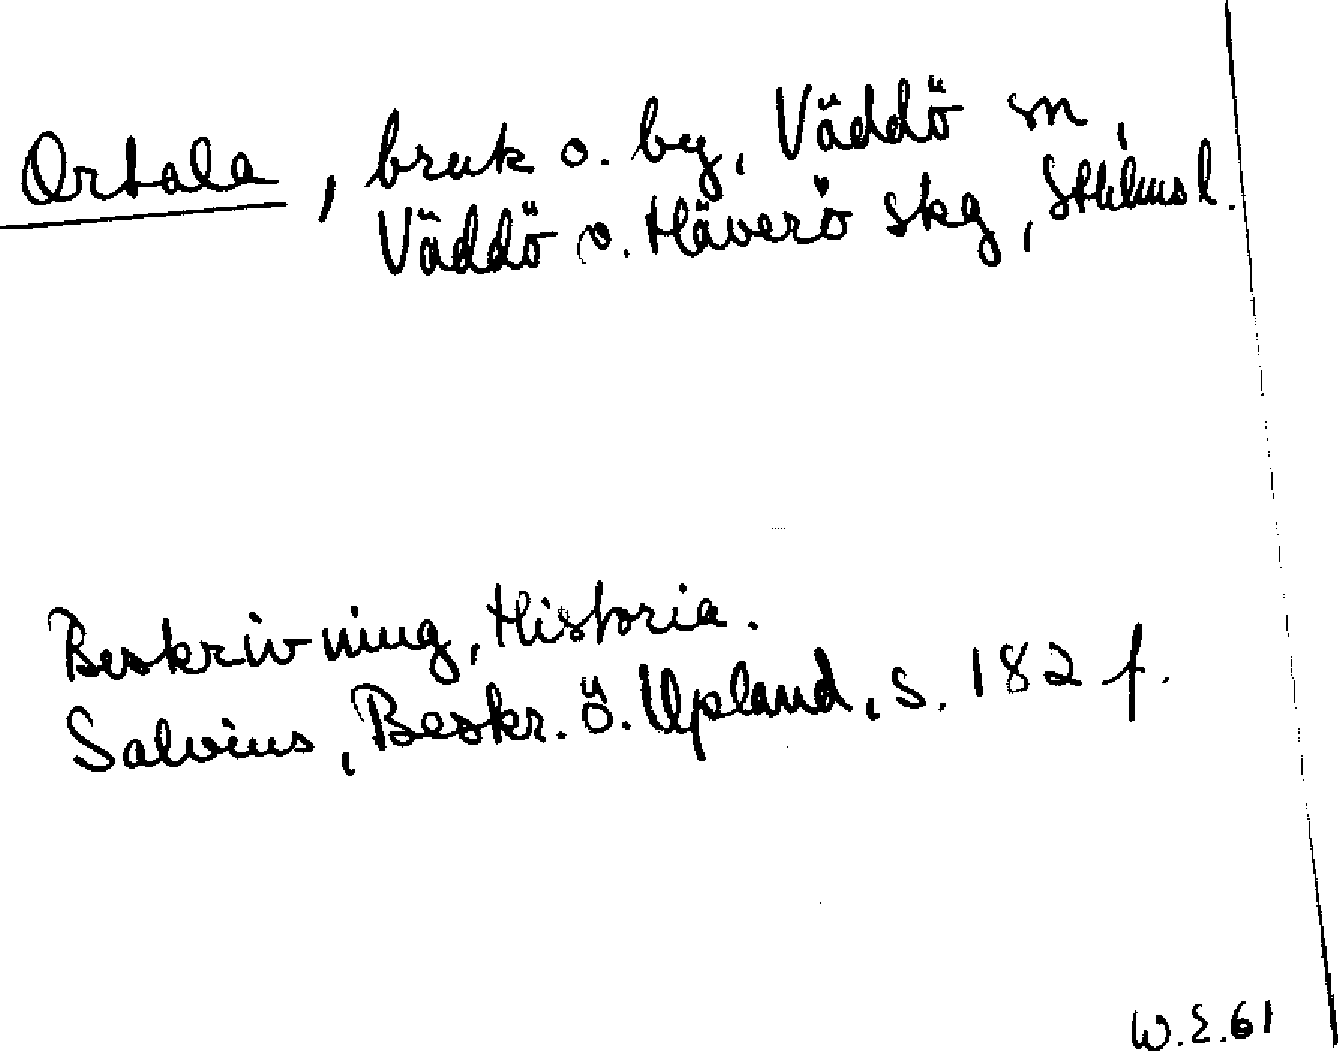 Ortala, bruk o. by, Väddö sn,
Väddö o. Häverö skg, Sthlms l.
Beskrivning, Historia.
Salvius, Beskr. ö. Upland, s. 182 f.
W.E.61